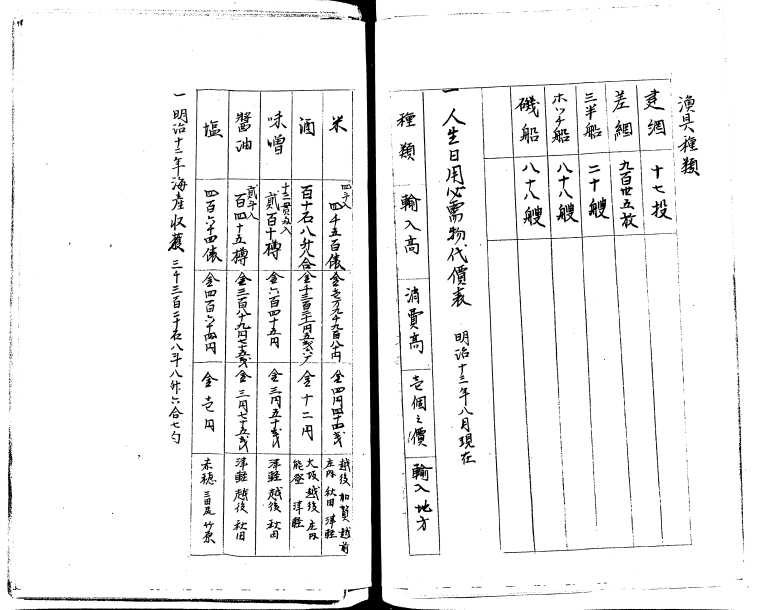 漁具種類
建網 十七投
差網 九百廿五枚
三半船 二十艘
ホッチ船 八十八艘
磯船 八十八艘
一 人生日用必需物代價表 明治十三年八月現在
種類 輸入高 消費高 壱個之價 輸入地方
米 四斗入 四千五百俵 金四円四十四戔 越後 加賀 越前 庄内 秋田 津軽
酒 百十石八升八合 金十二円 大坂 越後 庄内 能登 津軽
味噌 十二貫匁入 貳百十樽 金六百四十五円 金三円五十戔 津軽 越後 秋田
醬油 貳斗入 百四十五樽 金三円七十五戔 津軽 越後 秋田
塩 四百六十四俵 金四百六十四円 金壱円 赤穂 三田尻 竹原
一 明治十二年海産収獲 三千三百二十石八斗八升六合七勺